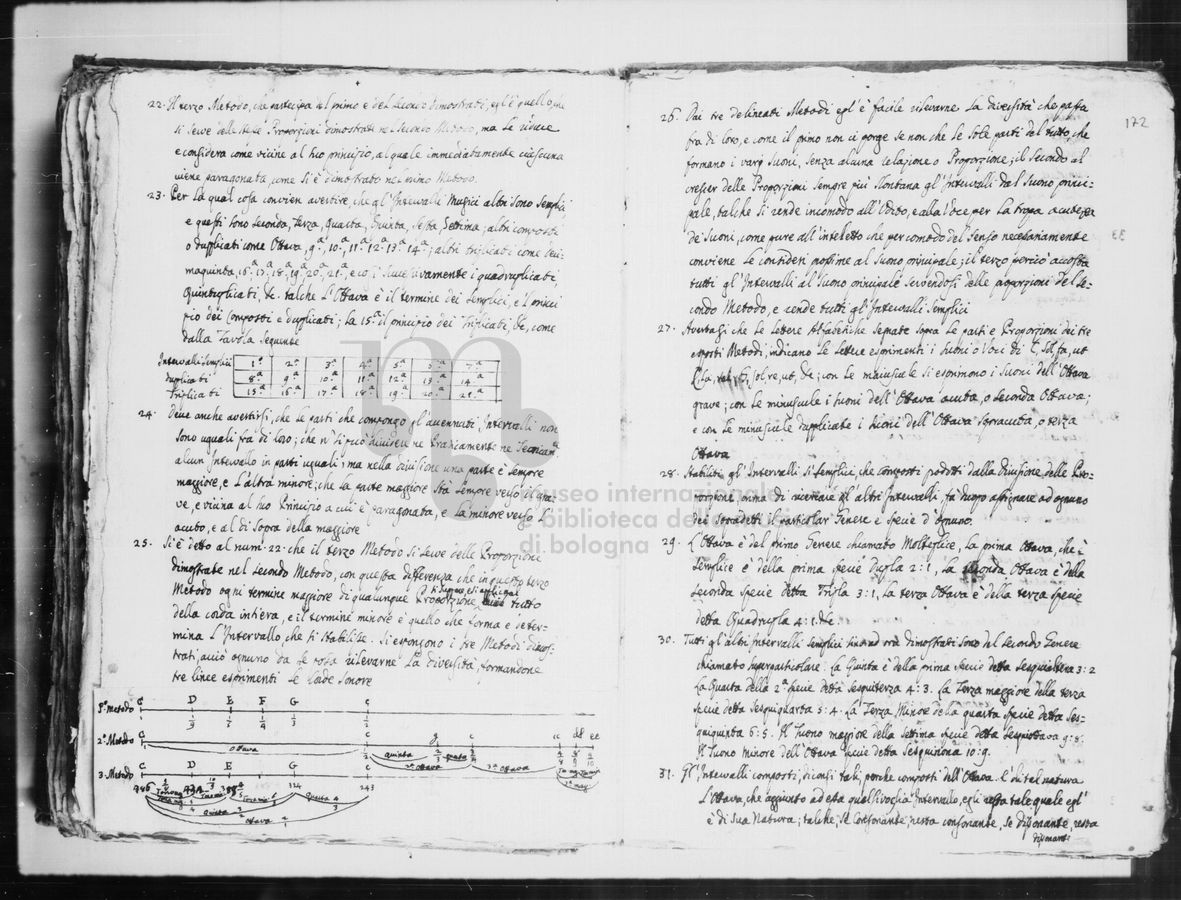 22. Il terzo Metodo, che partecipa al primo e del secondo dimostrati, egl'è quello che
si serve delle stesse Proporzioni dimostrate nel secondo Metodo, ma le riduce
e considera come vicine al suo principio, al quale immediatamente ciascuna
viene paragonata, come si è dimostrato nel primo Metodo.
23. Per la qual cosa convien avertire, che gl'Intervalli Musici altri sono Semplici
e questi sono Seconda, Terza, Quarta, Quinta, Sesta, Settima; altri composti
o dupplicati come Ottava, 9.ª 10.ª 11.ª 12.ª 13.ª 14.ª; altri triplicati come Deci-
maquinta, 16.ª 17.ª 18.ª 19.ª 20.ª 21.ª, e così successivamente i quadruplicati,
Quintuplicati, &c. talche l'Ottava è il termine dei Semplici, e l princi
pio dei Composti e dupplicati; la 15.ª il principio dei Triplicati, &c, come
dalla Tavola seguente
Intervalli Semplici 1.ª 2.ª 3.ª 4.ª 5.ª 6.ª 7.ª
duplicati 8.ª 9.ª 10.ª 11.ª 12.ª 13.ª 14.ª
Triplicati 15.ª 16.ª 17.ª 18.ª 19.ª 20.ª 21.ª
24. Deve anche avertirsi, che le parti che compongo gl'accennati Intervalli non
sono uguali fra di loro; che n si può dividere ne Praticamente ne Teorican.e
alcun Intervallo in parti uguali; ma nella divisione una parte è sempre
maggiore, e l'altra minore; che la parte maggiore sta sempre verso il gra-
ve, e vicina al suo Principio a cui è paragonata, e la minore verso l'
acuto, e al di sopra della maggiore
25. Si è detto al num. 22. che il terzo Metodo si serve delle Proporzioni
dimostrate nel secondo Metodo, con questa differenza che in questo terzo
Metodo ogni termine maggiore di qualunque Proporzione si suppone, ed applica al tutto
della corda intiera, e il termine minore è quello che forma e deter-
mina l'Intervallo che si stabilisce. Si espongono i tre Metodi dimos-
trati, acciò ognuno da se possa rilevarne la diversità, formandone
tre linee esprimenti le Corde sonore
P.º metodo C D E F G c
1/9 1/5 1/4 1/3
2.º Metodo C c g c cc dd ee
Ottava quinta 2/3 quarta 3/4
2ª Ottava 3ª Ottava
3. Metodo C D E G c
324 243
Quinta 3/2 Quarta 4/3
Ottava 2/1
172
26. Dai tre delineati Metodi egl'è facile rilevarne la diversità che passa
fra di loro, e come il primo non ci porge se non che le sole parti del tutto, che
formano i varj suoni, senza alcuna relazione o Proporzione; il secondo al
crescer delle Proporzioni sempre più slontana gl'Intervalli dal suono princi-
pale, talche si rende incomodo all'Odito, e alla Voce per la tropa acutezza
de' suoni, come pure all'inteletto che per comodo del senso necessariamente
conviene le consideri prossime al suono principale; il terzo perciò accosta
tutti gl'Intervalli al suono principale servendosi delle proporzioni del se-
condo Metodo, e rende tutti gl'Intervalli semplici
27. Avertasi che le Lettere Alfabetiche segnate sopra le parti e Proporzioni dei tre
esposti Metodi, indicano le Lettere esprimenti i suoni o Voci di C, sol, fa, ut
sol re, ut, &c; con le maiuscule si esprimono i suoni dell'Ottava
grave; con le minuscule i suoni dell'Ottava acuta, o seconda Ottava;
e con le minuscule dupplicate i suoni dell'Ottava sopracuta, o terza
Ottava
28. Stabiliti gl'Intervalli si semplici, che composti prodotti dalla Divisione delle Pro-
porzione, prima di ricercare gl'altri Intervalli, fa duopo assegnare ad ognuno
dei sopradetti il particolar Genere e specie d'ognuno.
29. L'Ottava è del primo Genere chiamato Molteplice, la prima Ottava, che è
semplice è della prima specie Dupla 2:1, la seconda Ottava è della
seconda specie detta Tripla 3:1, la terza Ottava è della terza specie
detta Quadrupla 4:1. &c.
30. Tutti gl'altri Intervalli semplici sin ad ora dimostrati sono del secondo Genere
chiamato superparticolare: La Quinta è della prima specie detta Sesquialtera 3:2
La Quarta della 2.ª specie detta Sesquiterza 4:3. La Terza maggiore della terza
specie detta Sesquiquarta 5:4. La Terza Minore della quarta specie detta Ses-
quiquinta 6:5. Il Tuono maggiore della settima specie detta Sesquiottava 9:8.
Il Tuono minore dell'Ottava specie detta Sesquinona 10:9.
31. Gl'Intervalli composti, diconsi tali, perche composti dell'Ottava. È di tal natura
l'Ottava, che aggiunto ad essa qualsivoglia Intervallo, egli resta tale quale egl'
è di sua Natura; talche, se Consonante, resta consonante, se dissonante, resta
dissonante
museo internazionale
e biblioteca della musica
di bologna